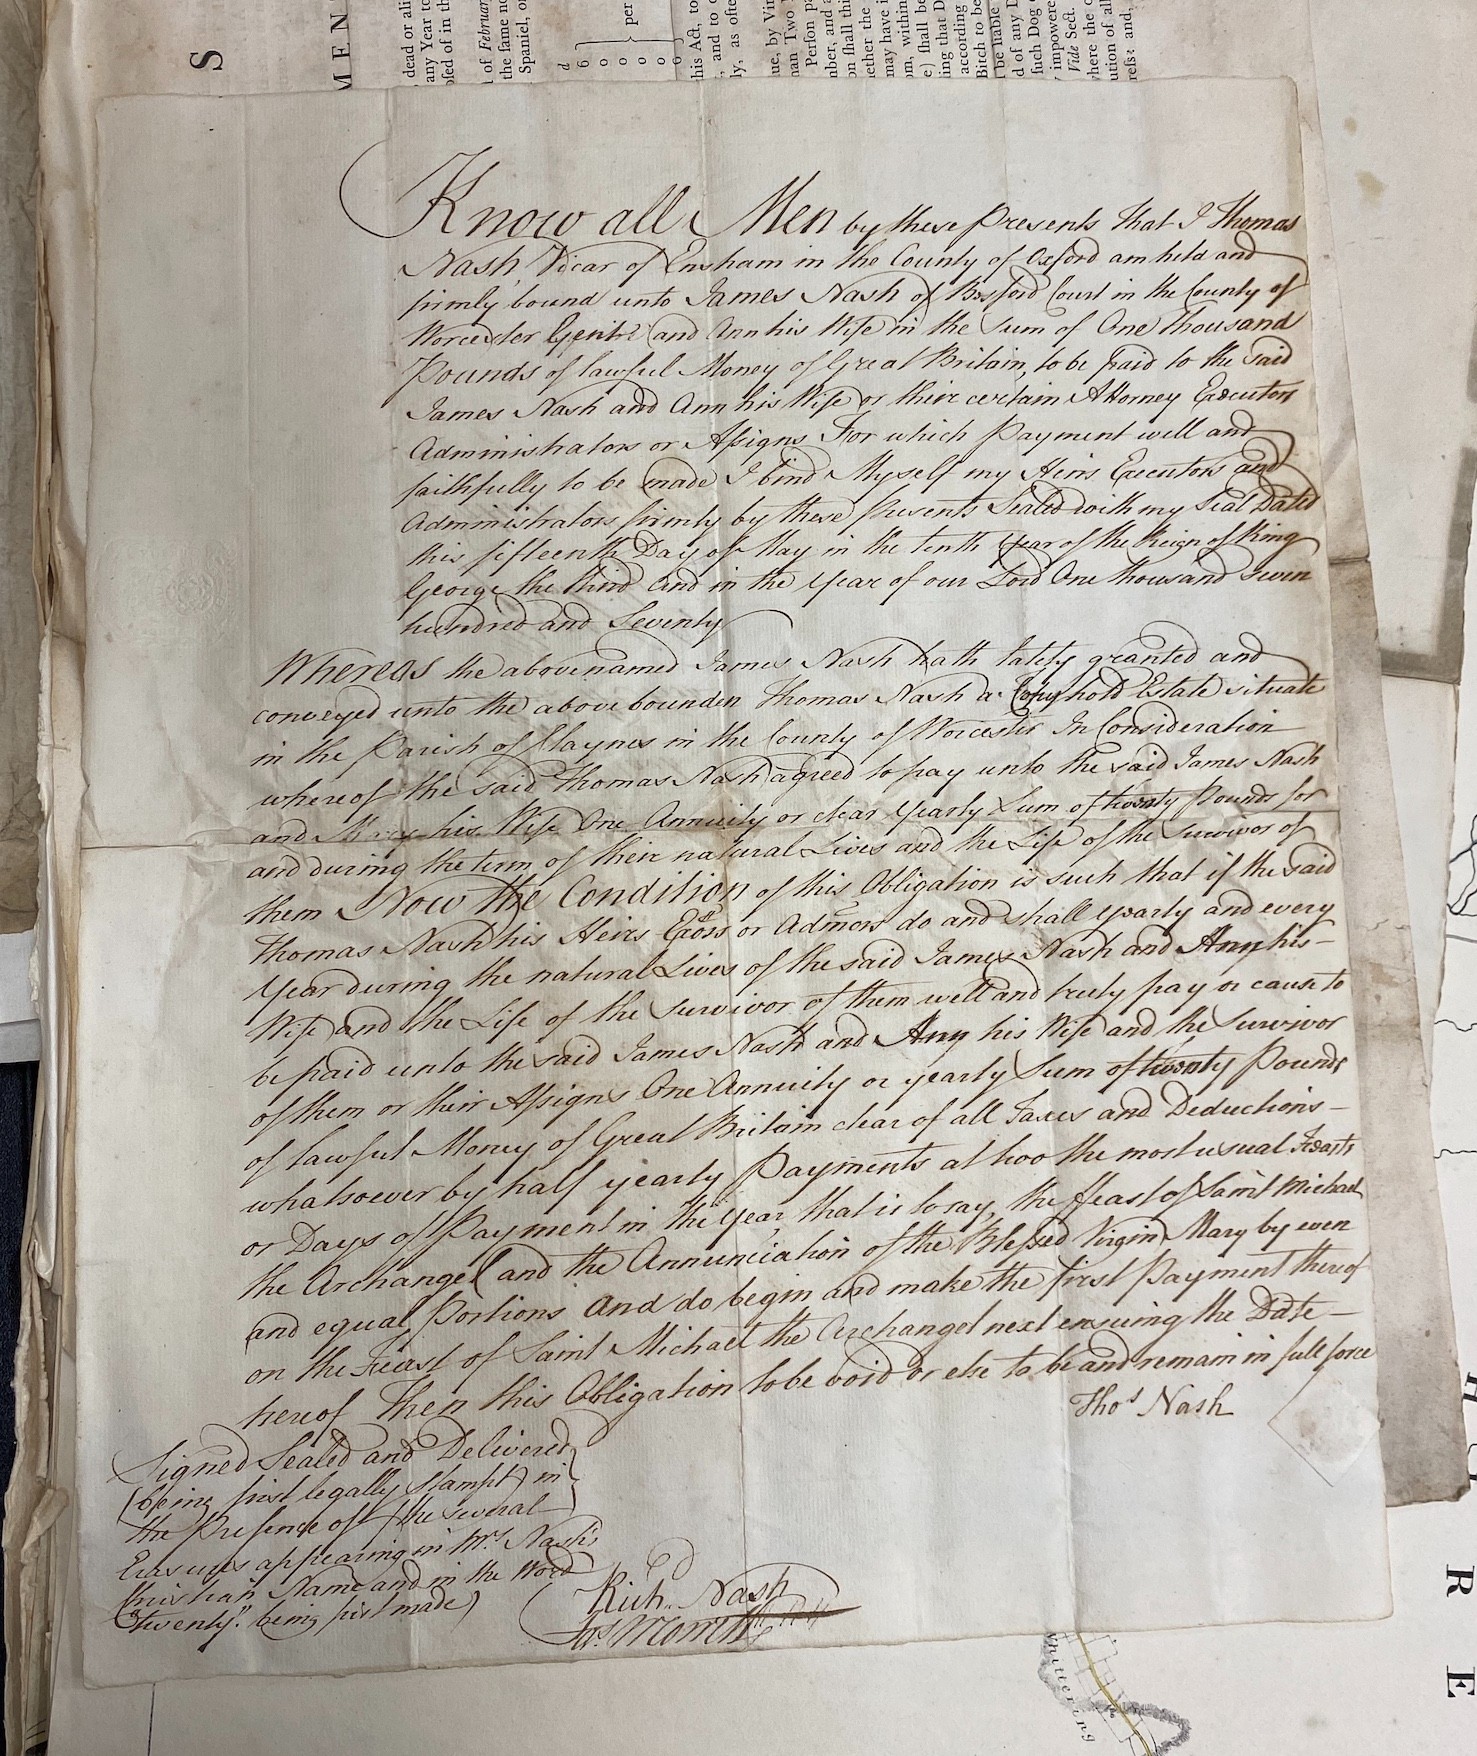 S
MEN
dead or ali
any Year to
of February
the same
Spaniel,
d
6
0
0
0
0
per
his Act, to
and to
ly, as ofte
ue, by Vir
nan Two
Person pa
mber, and
on shall thi
ether the
may have
om, within
e) shall be
ing that D
according
Bitch to be
be liable
d of any D
such Dog
impowere
Vide Sect.
here the
ution of all
ress: and,
Know all Men by these Presents that I Thomas
Nash Vicar of Ensham in the County of Oxford am held and
firmly bound unto James Nash of Besford Court in the County of
Worcester Gentn. and Ann his Wife in the Sum of One Thousand
Pounds of lawful Money of Great Britain to be paid to the said
James Nash and Ann his Wife or their certain Attorney Executors
Administrators or Assigns For which Payment well and
faithfully to be made I bind Myself my Heirs Executors and
Administrators firmly by these Presents Sealed with my Seal Dated
this fifteenth Day of May in the tenth Year of the Reign of King
George the third and in the Year of our Lord One thousand seven
hundred and Seventy
Whereas the abovenamed James Nash hath lately granted and
conveyed unto the above bounden Thomas Nash a Copyhold Estate situate
in the Parish of Claynes in the County of Worcester In Consideration
whereof the said Thomas Nash agreed to pay unto the said James Nash
and Mary his Wife One Annuity or clear Yearly Sum of twenty Pounds for
and during the term of their natural Lives and the Life of the Survivor of
them Now the Condition of this Obligation is such that if the said
Thomas Nash his Heirs Exors or Admors do and shall yearly and every
Year during the natural Lives of the said James Nash and Ann his
Wife and the Life of the Survivor of them well and truly pay or cause to
be paid unto the said James Nash and Ann his Wife and the Survivor
of them or their Assigns One Annuity or yearly Sum of twenty Pounds
of lawful Money of Great Britain clear of all Taxes and Deductions
whatsoever by half yearly Payments at two the most usual Feasts
or Days of Payment in the Year that is to say, the feast of Saint Michael
the Archangel and the Annunciation of the Blessed Virgin Mary by even
and equal Portions And do begin and make the first Payment thereof
on the Feast of Saint Michael the Archangel next ensuing the Date
hereof Then this Obligation to be void or else to be and remain in full force
Thos Nash
Signed Sealed and Delivered
(being first legally Stampt) in
the Presence of (the several
Erasures appearing in Mrs. Nash's
Christian Name and in the Word
"twenty" being first made)
Rich. Nash
R
E